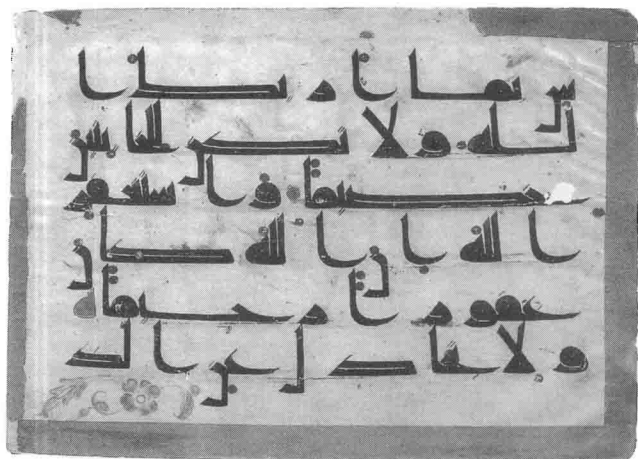 س بما اريك ا
لله ولا تكن للخاينين
خصيما واستغفر
الله ان الله كان
غفورا رحيما
ولا تجادل عن الذ